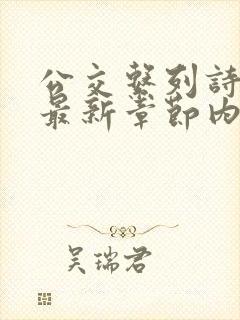 公交繫列詩
最新章節内
吴瑞君